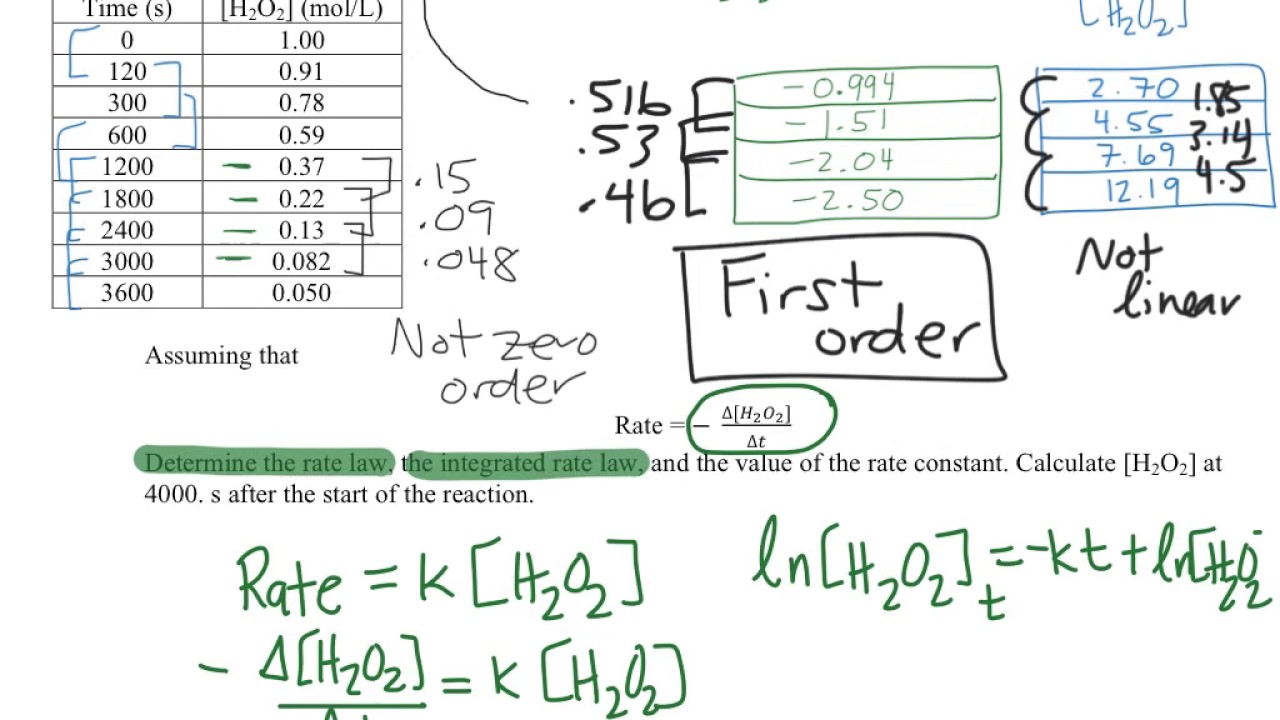 Time (s) [H₂O₂] (mol/L)
0 1.00
120 0.91
300 0.78
600 0.59
1200 – 0.37
1800 – 0.22
2400 – 0.13
3000 – 0.082
3600 0.050
.15
.09
.048
Not zero
order
.516
.53
.46
-0.994
-1.51
-2.04
-2.50
First
order
[H₂O₂]
2.70 1.85
4.55 3.14
7.69 4.5
12.19
Not
linear
Assuming that
Rate = − Δ[H₂O₂]
Δt
Determine the rate law, the integrated rate law, and the value of the rate constant. Calculate [H₂O₂] at
4000. s after the start of the reaction.
Rate = k [H₂O₂]
- Δ[H₂O₂] = k [H₂O₂]
ln[H₂O₂]t = -kt + ln[H₂O₂